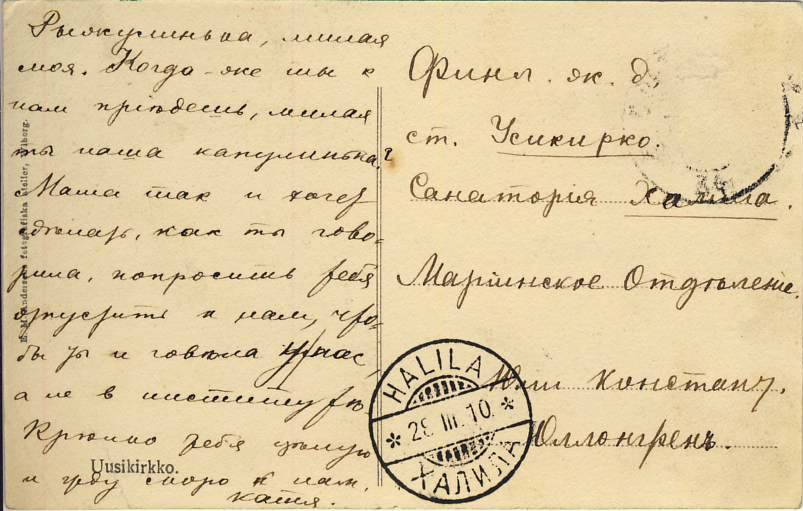 Рыжулинька, милая
моя. Когда-же ты к
нам пріѣдешь, милая
ты наша капулинька?
Маша так и хочет
дѣлать, как ты гово-
рила, попросить тебя
отпустить к нам, что-
бы ты и говѣла у нас,
а не в институтѣ.
Крѣпко тебя цѣлую
и жду скоро к нам.
Катя.
Uusikirkko.
Финл. ж. д.
ст. Усикирко.
Санаторія Халила.
Маріинское Отдѣленіе.
Юліи Констант.
Юллонгренъ.
HALILA
28.III.10.
ХАЛИЛА